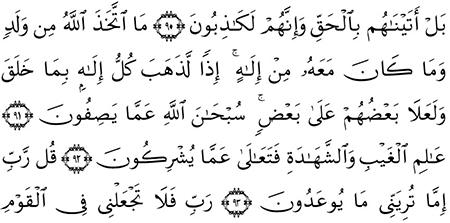 بَلْ أَتَيْنَاهُم بِالْحَقِّ وَإِنَّهُمْ لَكَاذِبُونَ ﴿٩٠﴾ مَا اتَّخَذَ اللَّهُ مِن وَلَدٍ
وَمَا كَانَ مَعَهُ مِنْ إِلَـٰهٍ ۚ إِذًا لَّذَهَبَ كُلُّ إِلَـٰهٍ بِمَا خَلَقَ
وَلَعَلَا بَعْضُهُمْ عَلَىٰ بَعْضٍ ۚ سُبْحَانَ اللَّهِ عَمَّا يَصِفُونَ ﴿٩١﴾
عَالِمِ الْغَيْبِ وَالشَّهَادَةِ فَتَعَالَىٰ عَمَّا يُشْرِكُونَ ﴿٩٢﴾ قُل رَّبِّ
إِمَّا تُرِيَنِّي مَا يُوعَدُونَ ﴿٩٣﴾ رَبِّ فَلَا تَجْعَلْنِي فِي الْقَوْمِ